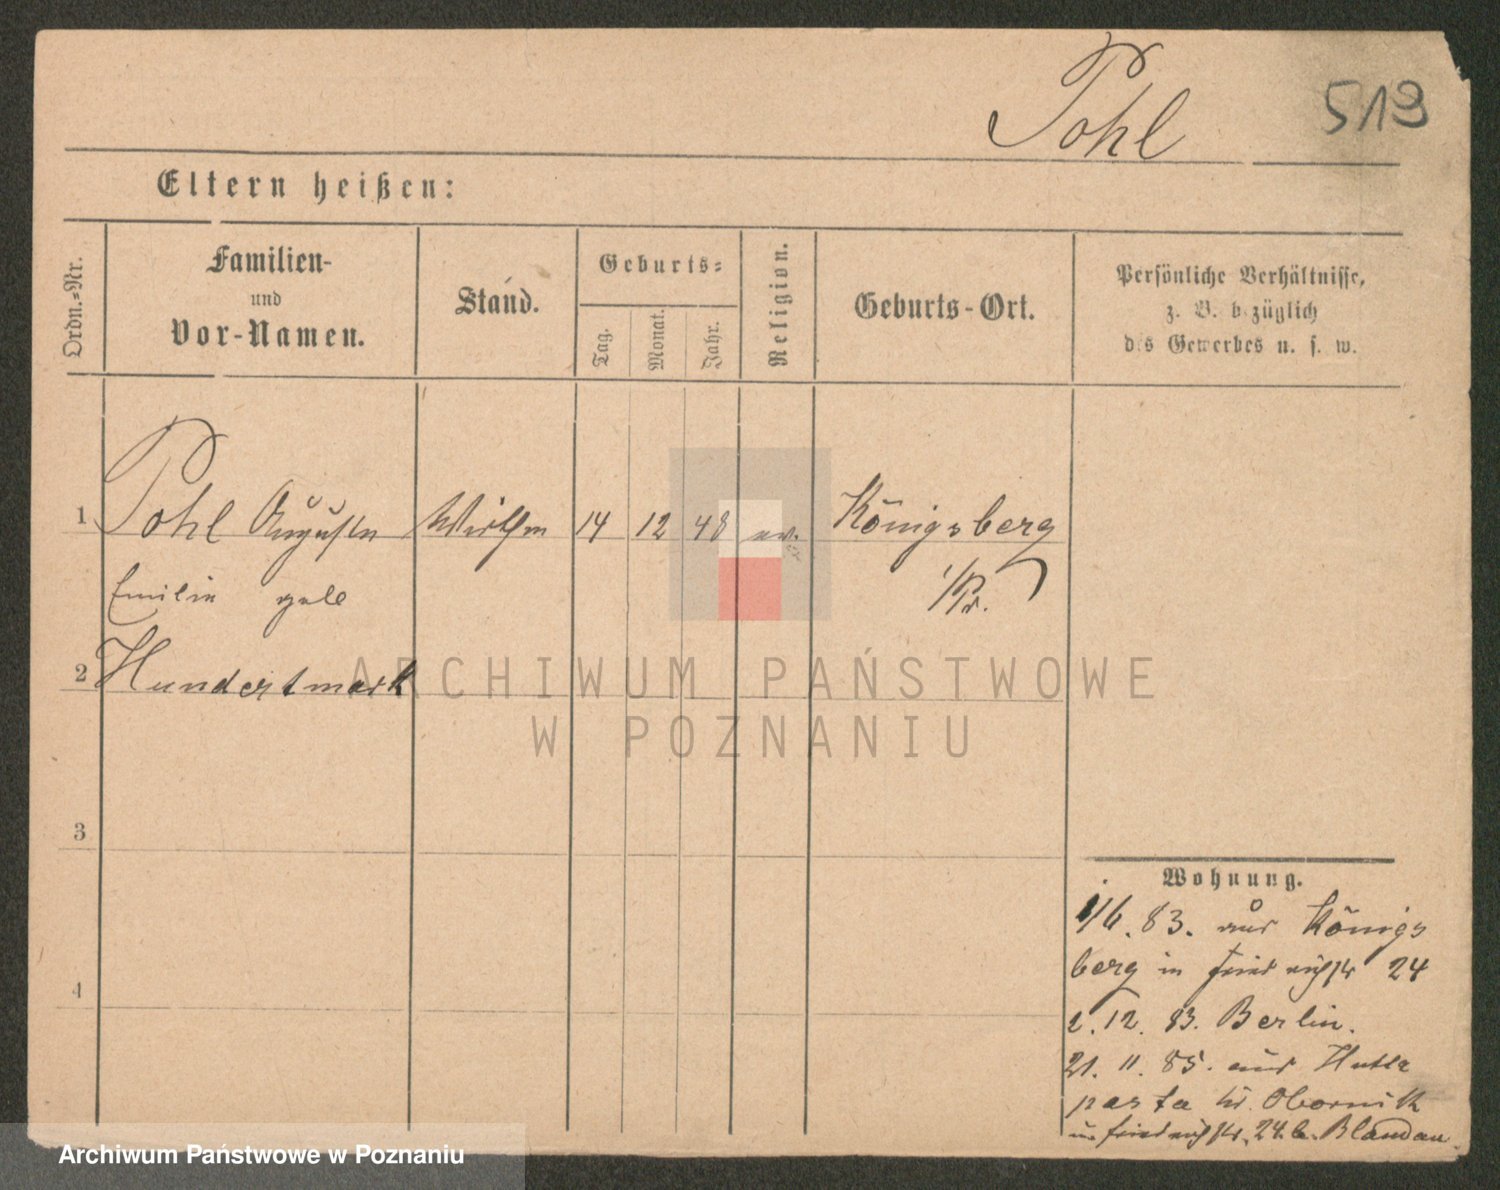 Pohl 519
Eltern heißen:
Ordn.-Nr.
Familien-
und
Vor-Namen.
Stand.
Geburts-
Tag.
Monat.
Jahr.
Religion.
Geburts-Ort.
Persönliche Verhältnisse,
z. B. bezüglich
des Gewerbes u. s. w.
1 Pohl Auguste Wirthin 14 12 48 ev. Königsberg
Emilie geb i/Pr.
2 Hundertmark
3
4
Wohnung.
1/6. 83. aus Königs
berg in Friedrichstr 24
2. 12. 83. Berlin.
21. 11. 85. aus
Kr. Obornik
Friedrichstr. 24. b.
ARCHIWUM PAŃSTWOWE
W POZNANIU
Archiwum Państwowe w Poznaniu